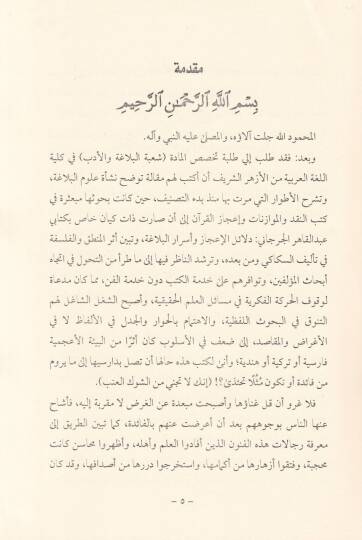 مقدمة
بِسْمِ اللَّهِ الرَّحْمَٰنِ الرَّحِيمِ
المحمود الله جلت آلاؤه، والمصلى عليه النبي وآله.
وبعد: فقد طلب إلي طلبة تخصص المادة (شعبة البلاغة والأدب) في كلية
اللغة العربية من الأزهر الشريف أن أكتب لهم مقالة توضح نشأة علوم البلاغة،
وتشرح الأطوار التي مرت بها منذ بدء التصنيف، حين كانت بحوثها مبعثرة في
كتب النقد والموازنات وإعجاز القرآن إلى أن صارت ذات كيان خاص بكتابي
عبدالقاهر الجرجاني: دلائل الإعجاز وأسرار البلاغة، وتبين أثر المنطق والفلسفة
في تأليف السكاكي ومن بعده، وترشد الناظر فيها إلى ما طرأ من التحول في اتجاه
أبحاث المؤلفين، وتوافرهم على خدمة الكتب دون خدمة الفن، مما كان مدعاة
لوقوف الحركة الفكرية في مسائل العلم الحقيقية، وأصبح الشغل الشاغل لهم
التنوق في البحوث اللفظية، والاهتمام بالحوار والجدل في الألفاظ لا في
الأغراض والمقاصد، إلى ضعف في الأسلوب كان أثرًا من البيئة الأعجمية
فارسية أو تركية أو هندية؛ وأنى لكتب هذه حالها أن تصل بدارسيها إلى ما يروم
من فائدة أو تكون مُثُلًا تحتذى؟! (إنك لا تجني من الشوك العنب).
فلا غرو أن قل غناؤها وأصبحت مبعدة عن الغرض لا مقربة إليه، فأشاح
عنها الناس بوجوههم بعد أن أعرضت عنهم بالفائدة، كما تبين الطريق إلى
معرفة رجالات هذه الفنون الذين أفادوا العلم وأهله، وأظهروا محاسن كانت
محجبة، وفتقوا أزهارها من أكمامها، واستخرجوا دررها من أصدافها، وقد كان
- ٥ -